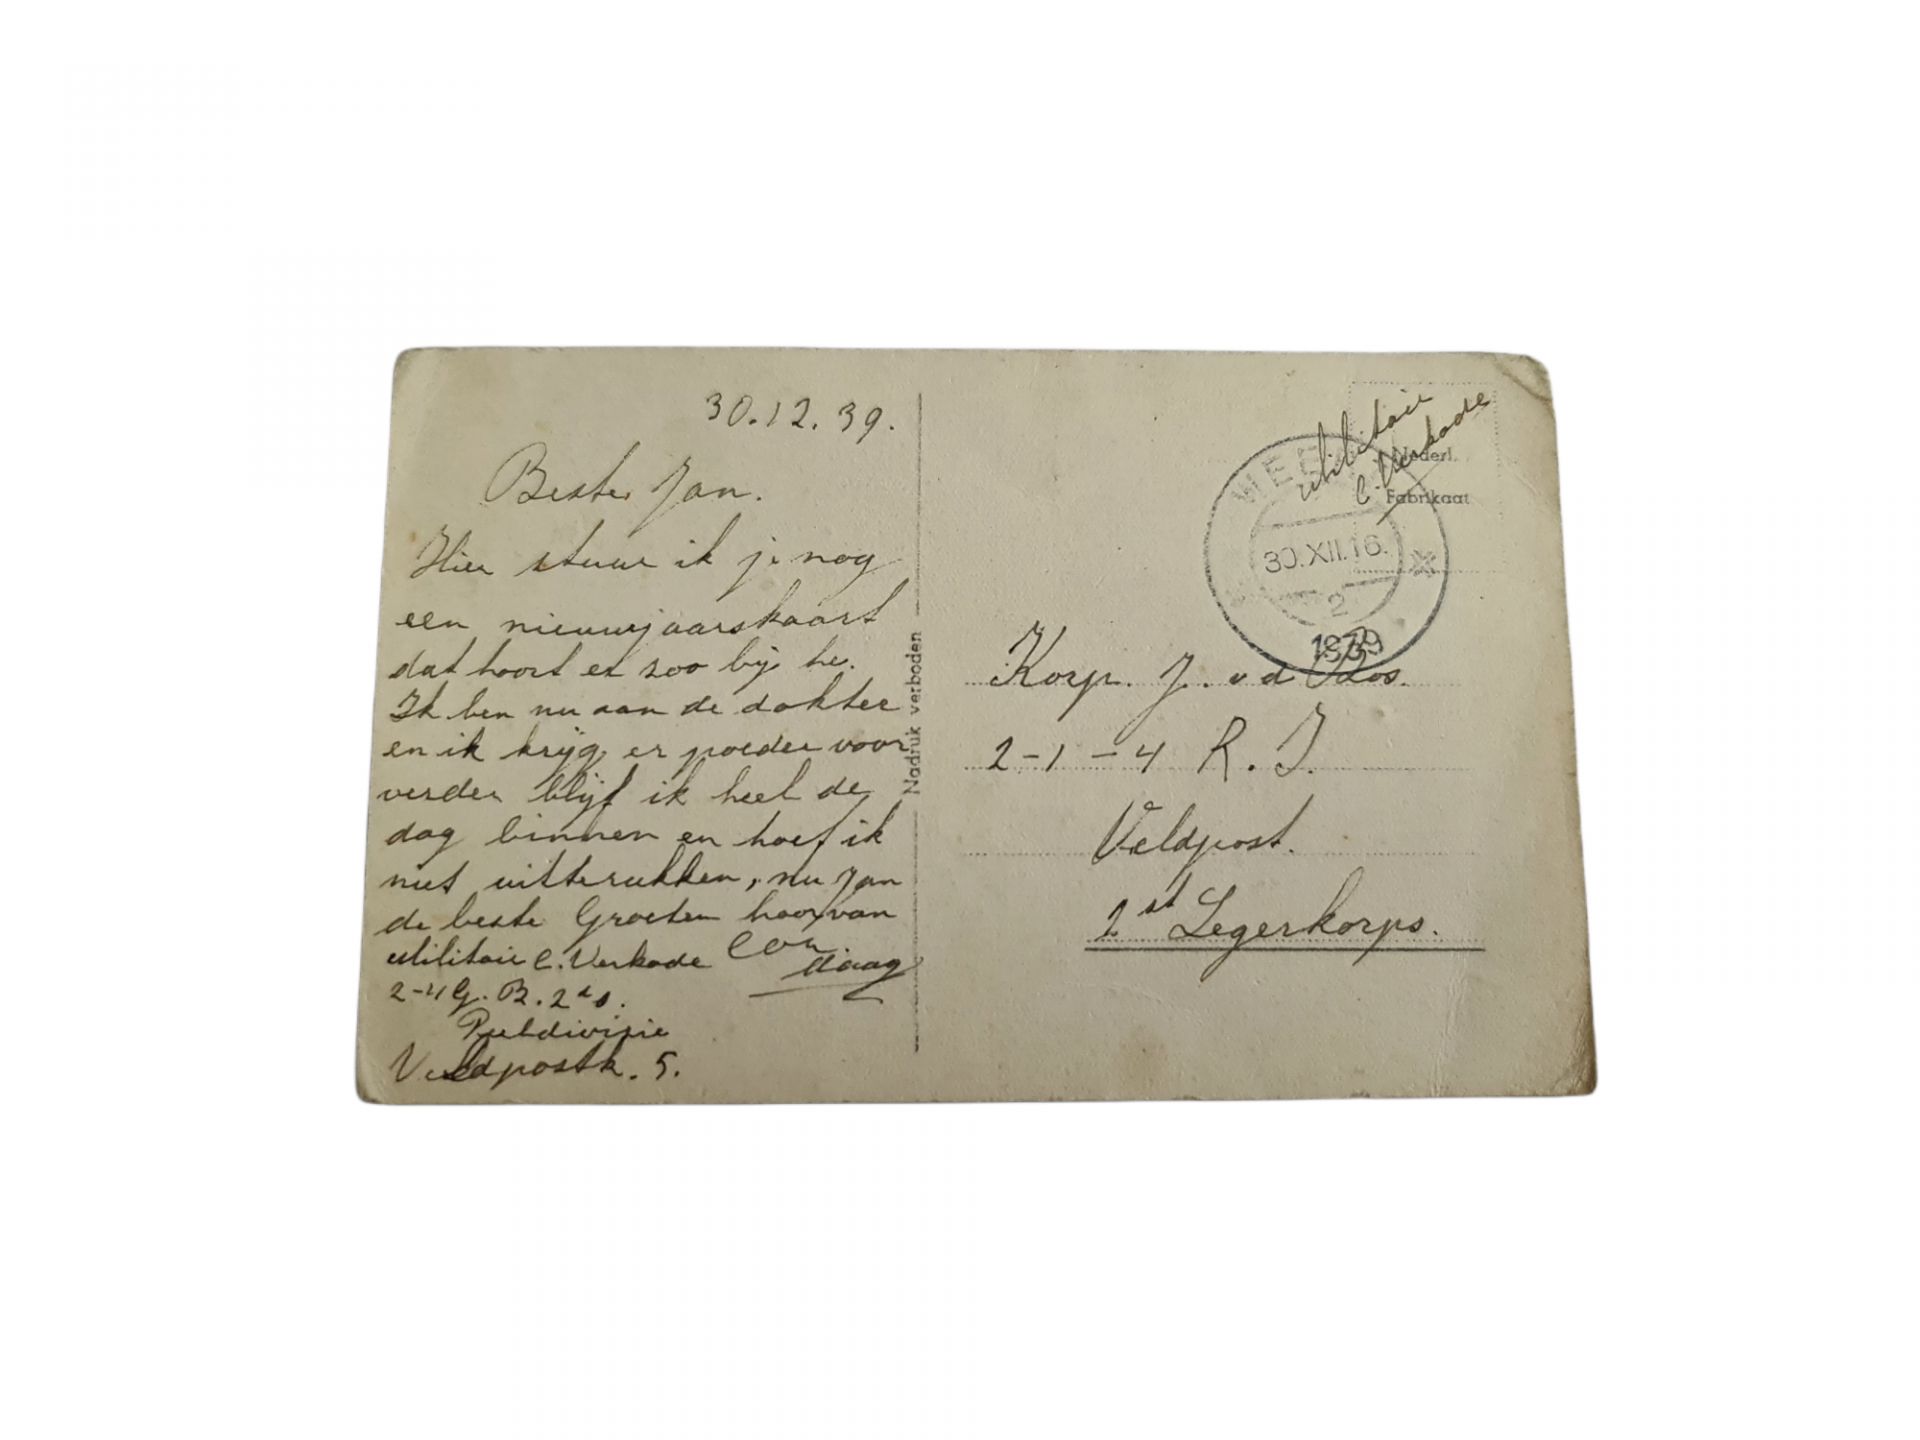 30.12.39.
Beste Jan.
Hier stuur ik je nog
een nieuwjaarskaart
dat hoort er zoo bij he.
Ik ben nu aan de dokter
en ik krijg er poeder voor
verder blijf ik heel de
dag binnen en hoef ik
niet uitterukken, nu Jan
de beste Groeten hoor van
Militair C. Verkade Cou.
daag
2-4 G. B. 2de
Peeldivisie
Veldpostk. 5.
Nadruk verboden
Militair
C. Verkade
Nederl.
Fabrikaat
30.XII.16.
2
1939
Korp. J. v d Bos.
2-1-4 R. I.
Veldpost.
2st Legerkorps.